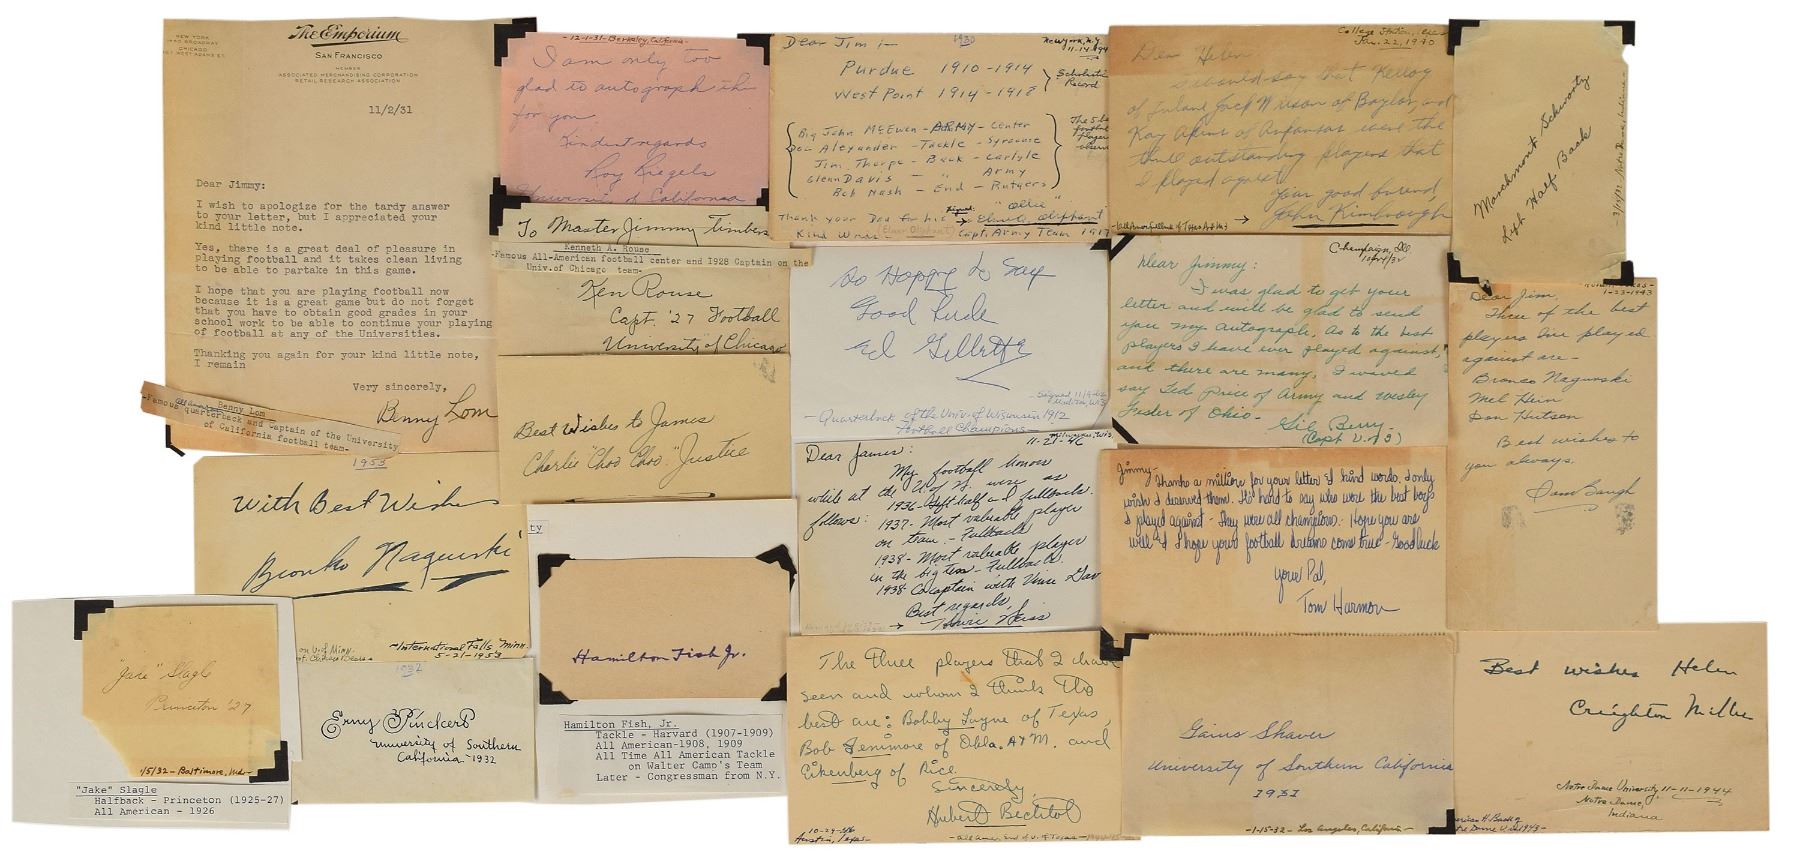 NEW YORK
CHICAGO
The Emporium
SAN FRANCISCO
MEMBER
ASSOCIATED MERCHANDISING CORPORATION
RETAIL RESEARCH ASSOCIATION
11/2/31
Dear Jimmy:
I wish to apologize for the tardy answer
to your letter, but I appreciated your
kind little note.
Yes, there is a great deal of pleasure in
playing football and it takes clean living
to be able to partake in this game.
I hope that you are playing football now
because it is a great game but do not forget
that you have to obtain good grades in your
school work to be able to continue your playing
of football at any of the Universities.
Thanking you again for your kind little note,
I remain
Very sincerely,
Benny Lom
Benny Lom
-Famous quarterback and Captain of the University
of California football team-
-12-1-31-Berkeley, California-
I am only too
glad to autograph this
for you.
Kindest regards
Roy Riegels
University of California
To Master Jimmy Timbers
Kenneth A. Rouse
-Famous All-American football center and 1928 Captain on the
Univ. of Chicago team-
Ken Rouse
Capt. '27 Football
University of Chicago
Best Wishes to James
Charlie "Choo Choo" Justice
1953
With Best Wishes
Bronko Nagurski
-International Falls, Minn.
5-21-1953
on U. of Minn.
"Jake" Slagle
Princeton '27
1/5/32-Baltimore, Md.-
"Jake" Slagle
Halfback - Princeton (1925-27)
All American - 1926
1932
Erny Pinckert
University of Southern
California - 1932
ty
Hamilton Fish Jr.
Hamilton Fish, Jr.
Tackle - Harvard (1907-1909)
All American-1908, 1909
All Time All American Tackle
on Walter Camp's Team
Later - Congressman from N.Y.
1930
New York, N.Y.
Dear Jim:-
Purdue 1910-1914
West Point 1914-1918
Scholastic
Record
Big John McEwen - ARMY - Center
Doc Alexander - Tackle - Syracuse
Jim Thorpe - Back - Carlyle
Glenn Davis - " Army
Bob Nash - End - Rutgers
The 5 best
football
players
Thank your Dad for his
Kind Words -
"Ollie"
Signed: → Elmer Oliphant
(Elmer Oliphant)
Capt. Army Team 1917
So Happy to Say
Good Luck
Ed Gillette
-Quarterback of the Univ. of Wisconsin 1912
Football Champions-
Milwaukee, Wis.
11-21-46
Dear James:
My football honors
while at the U of W. were as
follows: 1936-Left half and fullback.
1937-Most valuable player
on team.-Fullback
1938-Most valuable player
in the big ten-Fullback.
1938-Cocaptain with Vince Gav
Best regards,
→ Howie Weiss
The three players that I have
seen and whom I think the
best are: Bobby Layne of Texas,
Bob Fenimore of Okla. A+M. and
Eikenberg of Rice
Sincerely,
Hubert Bechtol
10-29-46
Austin, Texas-
-All Amer. End U. of Texas-
College Station, Texas
Jan. 22, 1940
Dear Helen
I would say that Kellog
of Tulane, Jack Wilson of Baylor, and
Kay Akins of Arkansas were the
three outstanding players that
I played against.
Your good friend,
→ John Kimbrough
Champaign, Ill
Dear Jimmy:
I was glad to get your
letter and will be glad to send
you my autograph. As to the best
players I have ever played against,
and there are many, I would
say Ted Price of Army and Wesley
Fesler of Ohio.
Gil Berry
(Capt U. of I)
Jimmy-
Thanks a million for your letter & kind words. I only
wish I deserved them. It's hard to say who were the best boys
I played against - They were all champions. Hope you are
well & I hope your football dreams come true - Good luck
Your Pal,
Tom Harmon
Gaius Shaver
University of Southern California
1931
-1-15-32- Los Angeles, California-
Marchmont Schwartz
Left Half Back
1-23-1943
Dear Jim,
Three of the best
players I've played
against are -
Bronco Nagurski
Mel Hein
Don Hutson
Best wishes to
you always.
Sam Baugh
Best wishes Helen
Creighton Miller
Notre Dame University 11-11-1944
Notre Dame,
Indiana